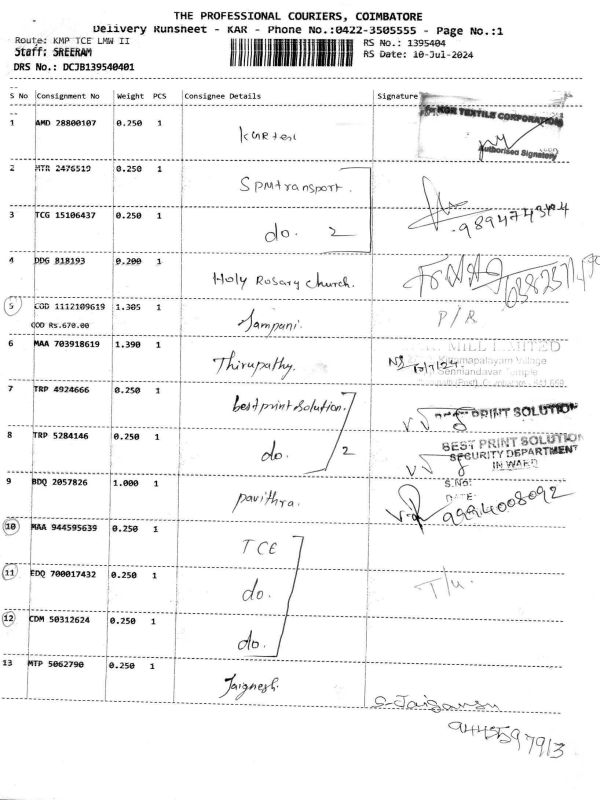 THE PROFESSIONAL COURIERS, COIMBATORE
Delivery Runsheet - KAR - Phone No.:0422-3505555 - Page No.:1
Route: KMP TCE LMW II
RS No.: 1395404
Staff: SREERAM
RS Date: 10-Jul-2024
DRS No.: DCJB139540401
S No Consignment No Weight PCS Consignee Details Signature
1 AMD 28800107 0.250 1
For KGR TEXTILE CORPORATION
Authorised Signatory
2 MTR 2476519 0.250 1 SPM transport.
3 TCG 15106437 0.250 1 do. 2
4 DDG 818193 0.200 1 Holy Rosary Church.
5 COD 1112109619 1.305 1 Sampani. P/R
COD Rs.670.00
6 MAA 703918619 1.390 1 Thirupathy.
MILL LIMITED
Village
Senniandavar Temple
10/7/24
7 TRP 4924666 0.250 1 best print solution. PRINT SOLUTION
8 TRP 5284146 0.250 1 do. 2
BEST PRINT SOLUTION
SECURITY DEPARTMENT
IN WARD
S.NO:
DATE:
9 BDQ 2057826 1.000 1 pavithra. 9994008092
10 MAA 944595639 0.250 1 TCE
11 EDQ 700017432 0.250 1 do.
12 CDM 50312624 0.250 1 do.
13 MTP 5062790 0.250 1 Jaignesh.